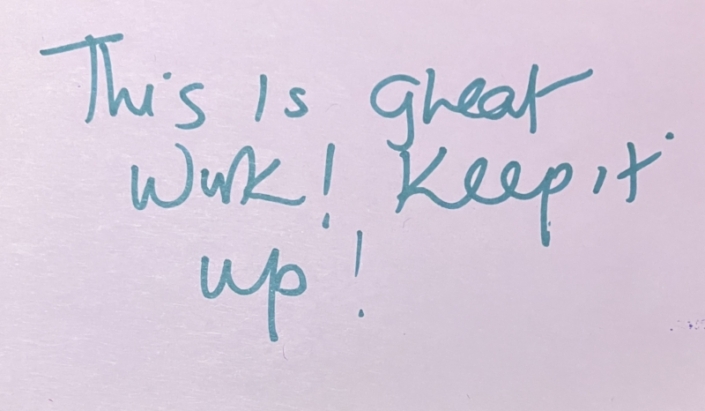 This is great
work! Keep it
up!